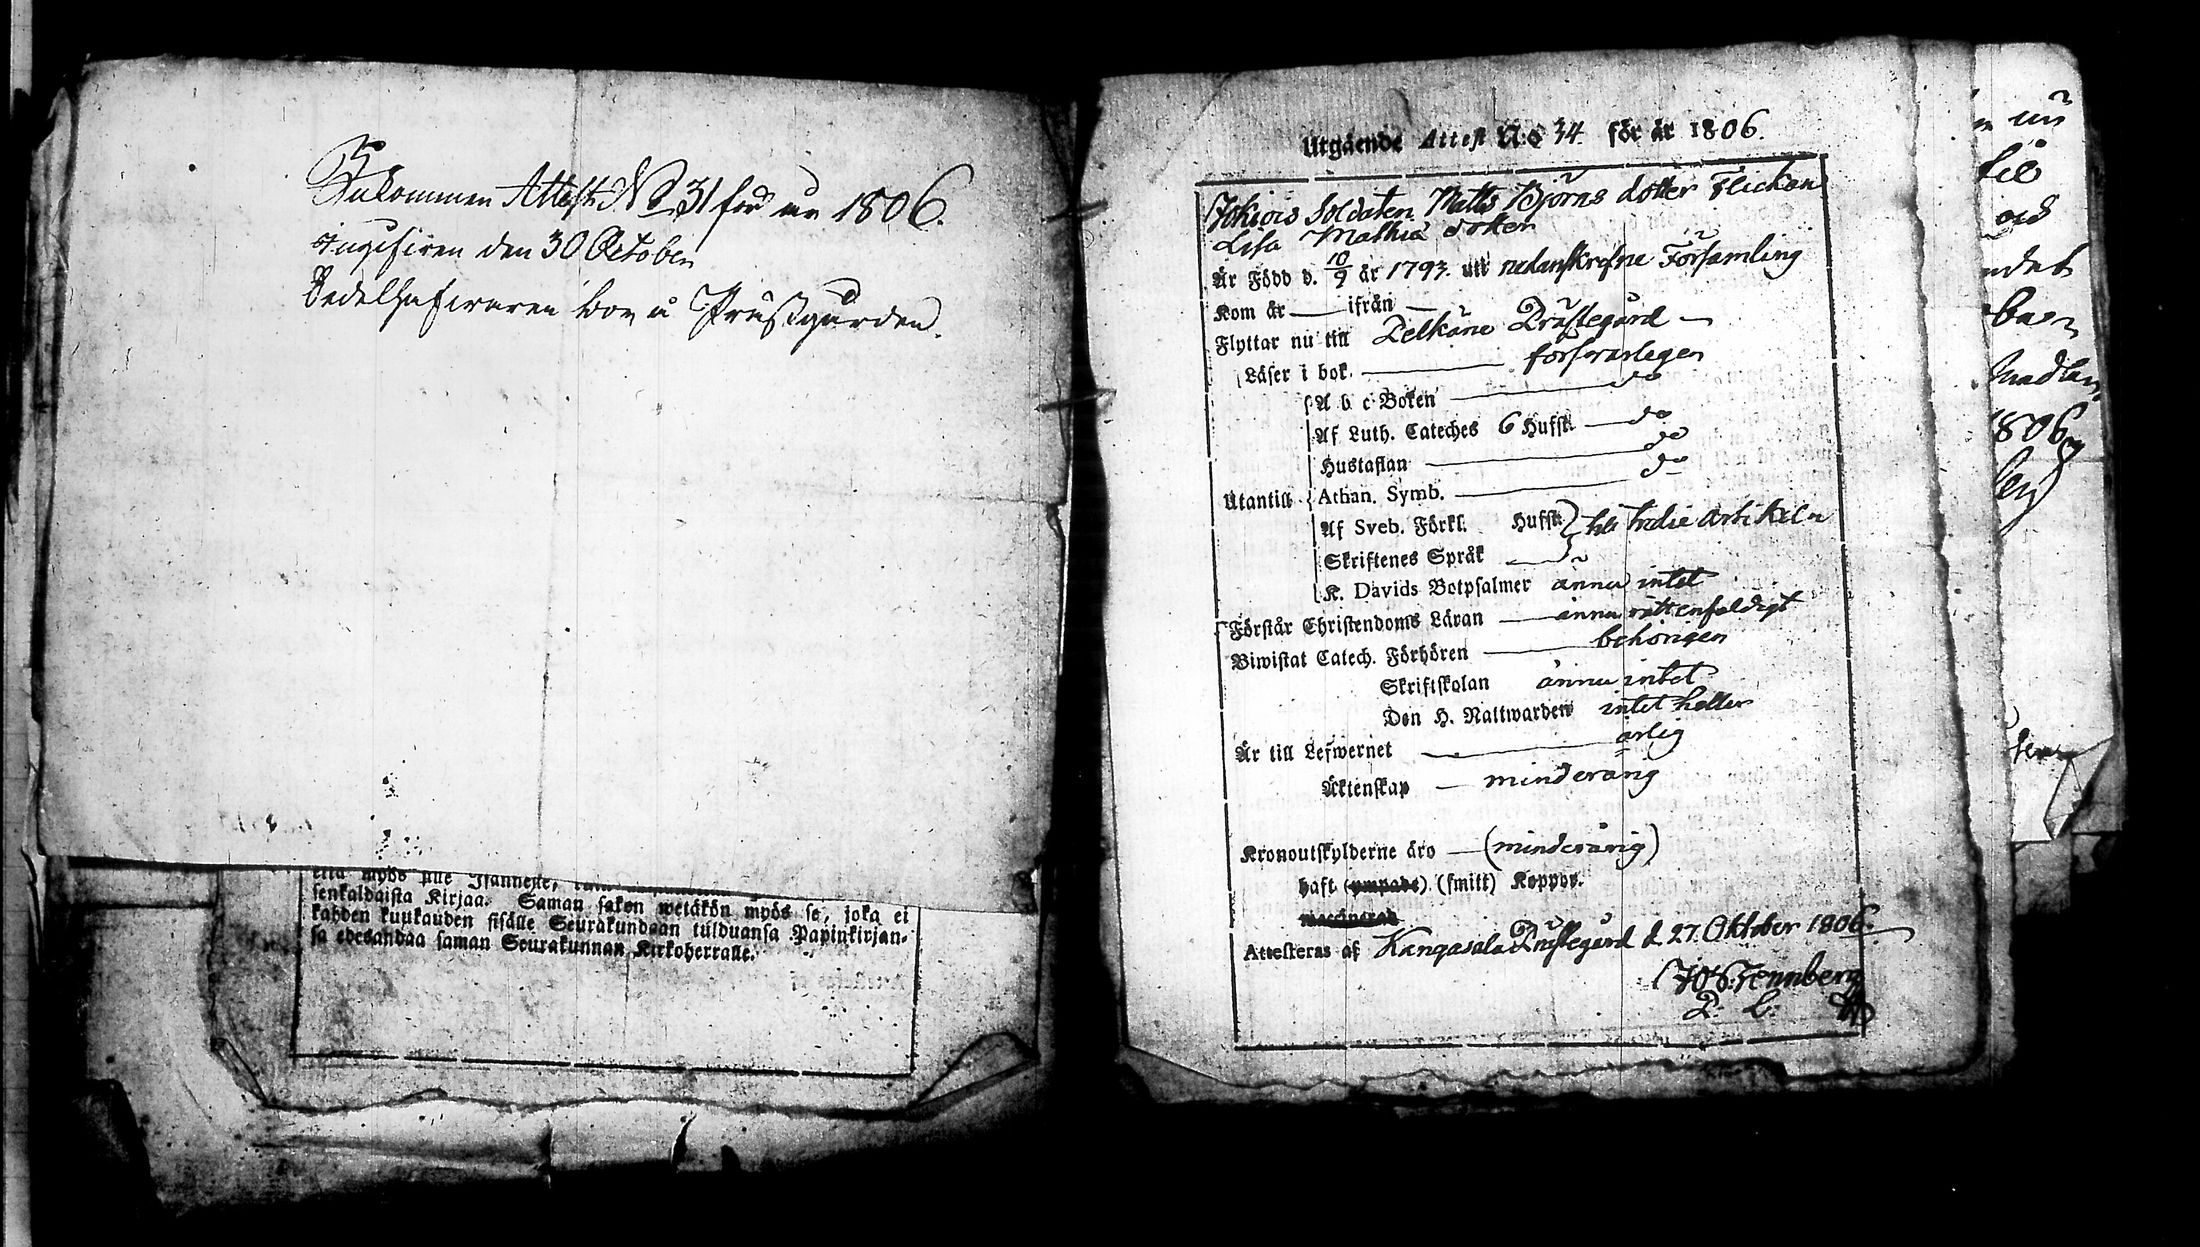 Inkommen Attest No 31 för år 1806.
den 30 October
bor å Prästgården.
senkaldaista Kirjaa. Saman sakon wetäkön myös se, joka ei
kahden kuukauden sisälle Seurakundaan tulduansa Papinkirjan-
sa edesandaa saman Seurakunnan Kirkoherralle.
Utgående Attest N:o 34. för år 1806.
Soldaten Matts Björns dotter Flickan
Lisa Mathiæ dotter
Är Född d. 10/9 år 1793. uti nedanskrefne Församling
Kom år — ifrån —
Flyttar nu till Pelkäne Prästegård —
Läser i bok. — försvarlegen
A b c Boken — do
Af Luth. Cateches 6 Hufst. — do
Hustaflan — do
Utantill Athan. Symb. — do
Af Sveb. Förkl. Hufst. till tredie Artikeln
Skriftenes Språk —
K. Davids Botpsalmer ännu intet
Förstår Christendoms Läran — ännu rätt enfaldigt
Biwistat Catech. Förhören — behörigen
Skriftskolan ännu intet
Den H. Nattwarden intet heller
Är till Lefwernet — ärlig
Äktenskap — minderårig
Kronoutskylderne äro — (minderårig)
haft (ympade) (smitt) Koppor.
Attesteras af Kangasala Prästegård d. 27. Oktober 1806.
un
til
och
ndet
barn
1806